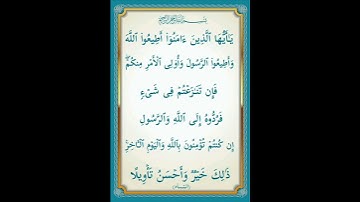 يَـٰٓأَيُّهَا ٱلَّذِينَ ءَامَنُوٓا۟ أَطِيعُوا۟ ٱللَّهَ
وَأَطِيعُوا۟ ٱلرَّسُولَ وَأُو۟لِى ٱلْأَمْرِ مِنكُمْ ۖ
فَإِن تَنَـٰزَعْتُمْ فِى شَىْءٍ
فَرُدُّوهُ إِلَى ٱللَّهِ وَٱلرَّسُولِ
إِن كُنتُمْ تُؤْمِنُونَ بِٱللَّهِ وَٱلْيَوْمِ ٱلْـَٔاخِرِ ۚ
ذَٰلِكَ خَيْرٌ وَأَحْسَنُ تَأْوِيلًا